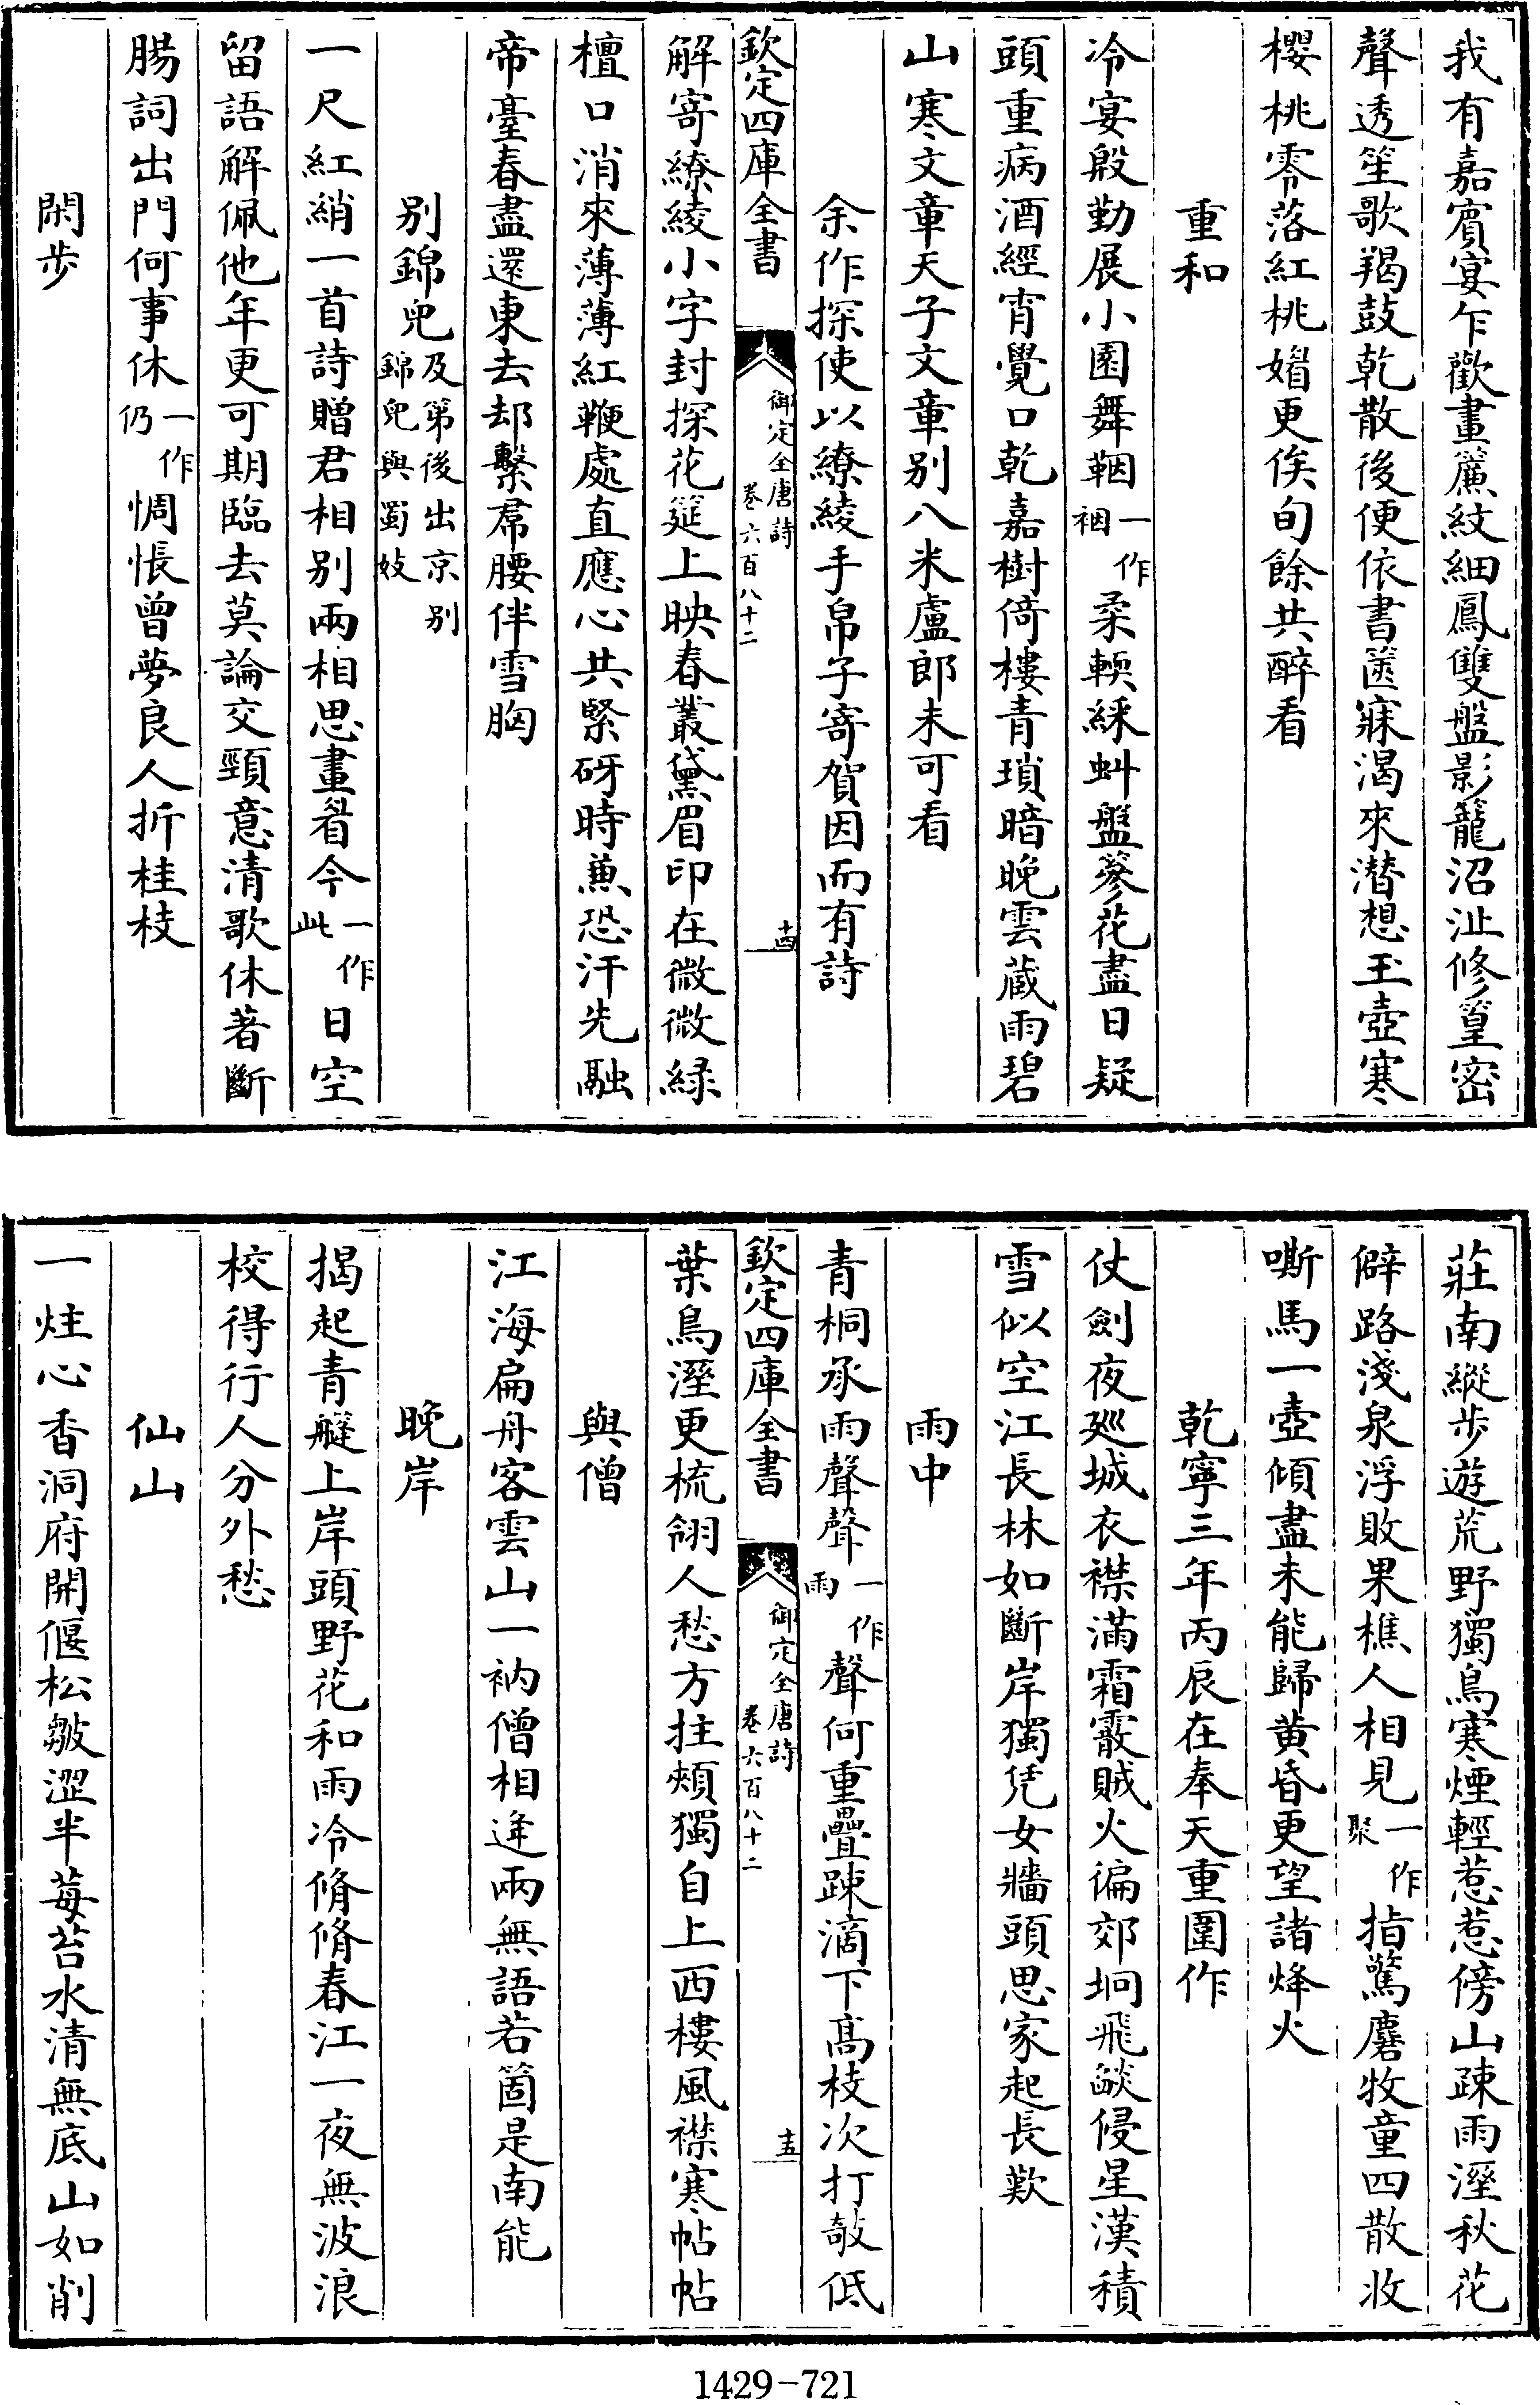 我有嘉賓宴乍歡畫簾紋細鳳雙盤影籠沼沚修篁密
聲透笙歌羯鼓乾散後便依書篋寐渴來潛想玉壺寒
櫻桃零落紅桃媚更俟旬餘共醉看
重和
冷宴殷勤展小園舞鞇一作裀柔輭綵虯盤篸花盡日疑
頭重病酒經宵覺口乾嘉樹倚樓青瑣暗晚雲藏雨碧
山寒文章天子文章别八米盧郎未可看
余作探使以繚綾手帛子寄賀因而有詩
欽定四庫全書 御定全唐詩 卷六百八十二 十四
解寄繚綾小字封探花筵上映春叢黛眉印在微微緑
檀口消來薄薄紅鞭處直應心共緊砑時兼恐汗先融
帝臺春盡還東去却繫帬腰伴雪胸
别錦兒及第後出京别錦兒與蜀妓
一尺紅綃一首詩贈君相别兩相思畫眉今一作此日空
留語解佩他年更可期臨去莫論交頸意清歌休著斷
腸詞出門何事休一作仍惆悵曾夢良人折桂枝
閑步
莊南縱步遊荒野獨鳥寒煙輕惹惹傍山疎雨溼秋花
僻路淺泉浮敗果樵人相見一作聚指驚麏牧童四散收
嘶馬一壺傾盡未能歸黄昏更望諸烽火
乾寧三年丙辰在奉天重圍作
仗劍夜廵城衣襟滿霜霰賊火徧郊坰飛燄侵星漢積
雪似空江長林如斷岸獨凭女牆頭思家起長歎
雨中
青桐承雨聲聲一作雨聲何重疊疎滴下高枝次打敧低
欽定四庫全書 御定全唐詩 卷六百八十二 十五
葉鳥溼更梳翎人愁方拄頰獨自上西樓風襟寒帖帖
與僧
江海扁舟客雲山一衲僧相逢兩無語若箇是南能
晚岸
揭起青䉠上岸頭野花和雨冷脩脩春江一夜無波浪
校得行人分外愁
仙山
一炷心香洞府開偃松皺澀半莓苔水清無底山如削
1429-721